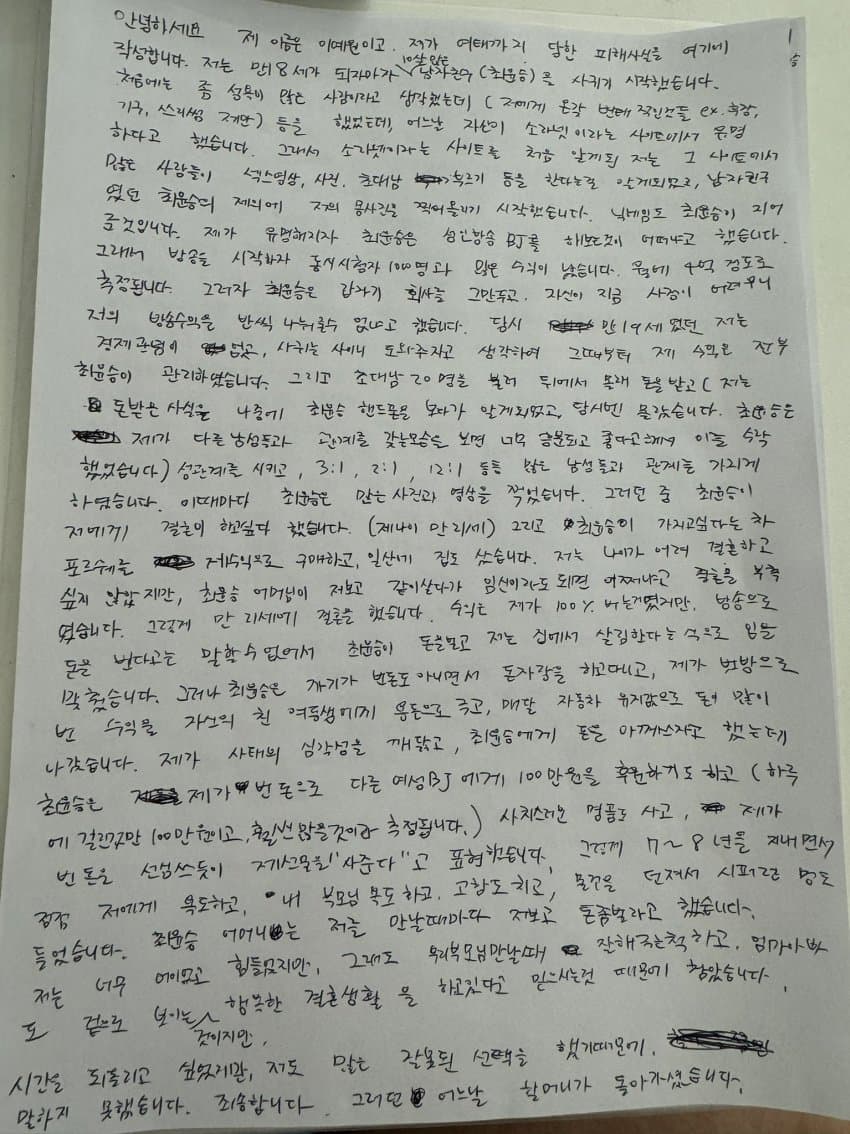 1
안녕하세요 제 이름은 이예원이고. 저가 여태까지 당한 피해사실을 여기에
작성합니다. 저는 만18세가 되자마자 10살많은 남자친구(최윤승)을 사귀기 시작했습니다.
처음에는 좀 성욕이 많은 사람이라고 생각했는데 (저에게 온갖 변태적인것들 ex.
기구, 쓰리썸 제안) 등을 했었는데, 어느날 자신이 소라넷이라는 사이트에서 유명
하다고 했습니다. 그래서 소라넷이라는 사이트를 처음 알게된 저는 그 사이트에서
많은 사람들이 섹스영상, 사진. 초대남 부르기 등을 한다는걸 알게되었고, 남자친구
였던 최윤승의 제의에 저의 몸사진을 찍어올리기 시작했습니다. 닉네임도 최윤승이 지어
준것입니다. 제가 유명해지자 최윤승은 성인방송 BJ를 해보는것이 어떠냐고 했습니다.
그래서 방송을 시작하자 동시시청자 1000명과 많은 수익이 났습니다. 월에 4억 정도로
측정됩니다. 그러자 최윤승은 갑자기 회사를 그만두고. 자신이 지금 사정이 어려우니
저의 방송수익을 반씩 나눠줄수 없냐고 했습니다. 당시 만19세였던 저는
경제관념이 없고, 사귀는 사이니 도와주자고 생각하여 그때부터 제 수익은 전부
최윤승이 관리하였습니다. 그리고 초대남 20명을 불러 뒤에서 몰래 돈을받고 (저는
돈받은 사실을 나중에 최윤승 핸드폰을 보다가 알게되었고, 당시엔 몰랐습니다. 최윤승은
제가 다른남성들과 관계를 갖는모습을 보면 너무 흥분되고 좋다고해서 이를 수락
했었습니다) 성관계를 시키고, 3:1, 2:1, 12:1 등등 많은 남성들과 관계를 가지게
하였습니다. 이때마다 최윤승은 많은 사진과 영상을 찍었습니다. 그러던 중 최윤승이
저에게 결혼이 하고싶다 했습니다. (제나이 만21세) 그리고 최윤승이 가지고싶다는 차
포르쉐를 제수익으로 구매하고, 일산에 집도 샀습니다. 저는 나이가 어려 결혼하고
싶지 않았지만, 최윤승 어머님이 저보고 같이살다가 임신이라도 되면 어쩌냐고 결혼을 부추
겼습니다. 그렇게 만 21세에 결혼을 했습니다. 수익은 제가 100% 버는거였지만. 방송으로
돈을 번다고는 말할수 없어서 최윤승이 돈을벌고 저는 집에서 살림한다는 식으로 입을
맞췄습니다. 그러나 최윤승은 자기가 번돈도 아니면서 돈자랑을 하고다니고, 제가 벗방으로
번 수익을 자신의 친 여동생에게 용돈으로 주고, 매달 자동차 유지값으로 돈이 많이
나갔습니다. 제가 사태의 심각성을 깨닫고, 최윤승에게 돈을 아껴쓰자고 했는데
최윤승은 제가 번돈으로 다른 여성BJ에게 100만원을 후원하기도 하고 (하루
에 걸린것만 100만원이고, 훨씬 많을것이라 측정됩니다.) 사치스러운 명품도 사고, 제가
번 돈을 선심쓰듯이 제선물을 "사준다"고 표현했습니다. 그렇게 7~8년을 지내면서
점점 저에게 욕도하고, 내 부모님 욕도 하고. 고함도 치고, 물건을 던져서 시퍼런 멍도
들었습니다. 최윤승 어머니는 저를 만날때마다 저보고 돈좀벌라고 했습니다.
저는 너무 어이없고 힘들었지만, 그래도 우리부모님만날때 잘해주는척하고. 엄마아빠
도 겉으로 보이는것이지만, 행복한 결혼생활을 하고있다고 믿으시는것 때문에 참았습니다.
시간을 되돌리고 싶었지만, 저도 많은 잘못된 선택을 했기때문에.
말하지 못했습니다. 죄송합니다. 그러던 어느날 할머니가 돌아가셨습니다.